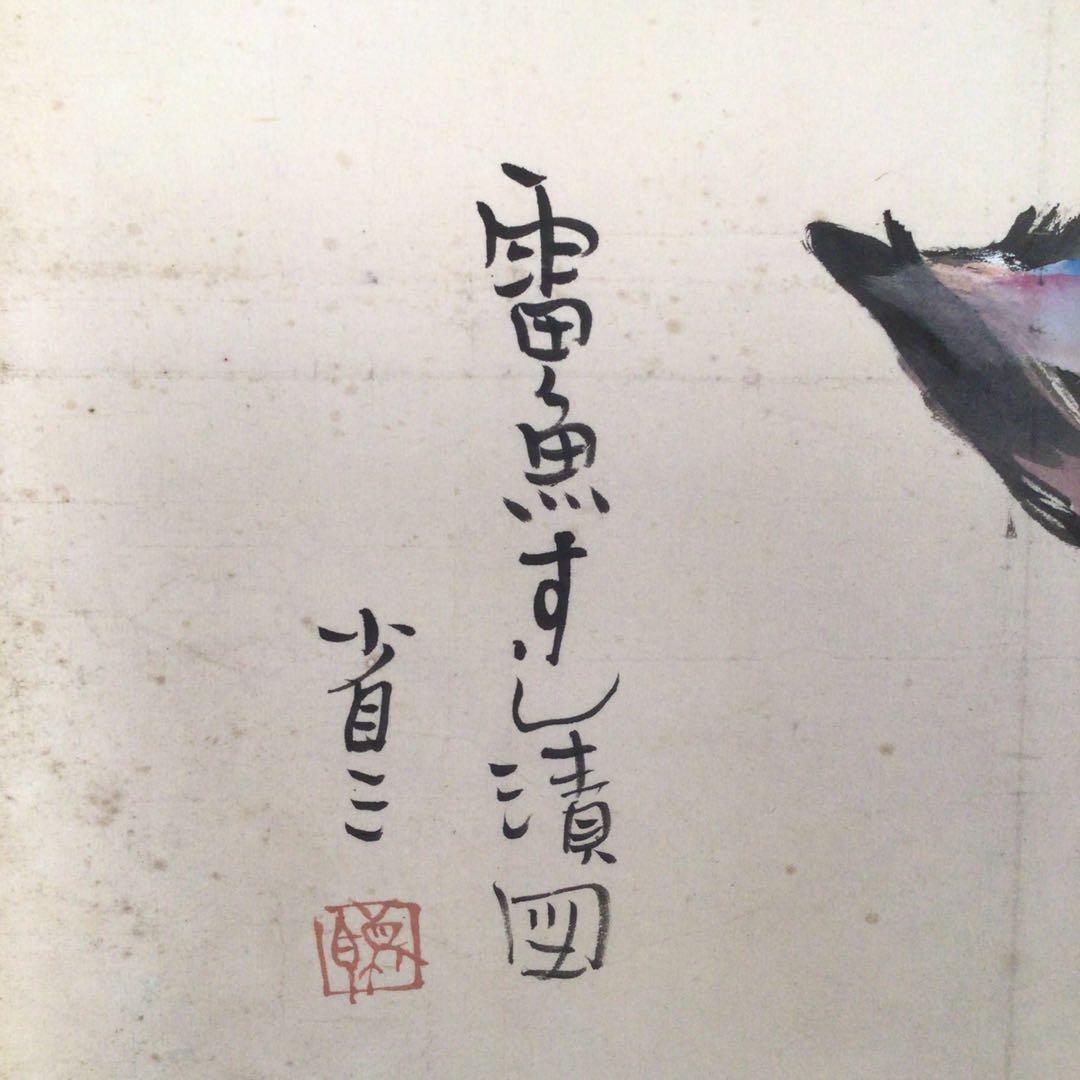 雷魚すし漬図
省三